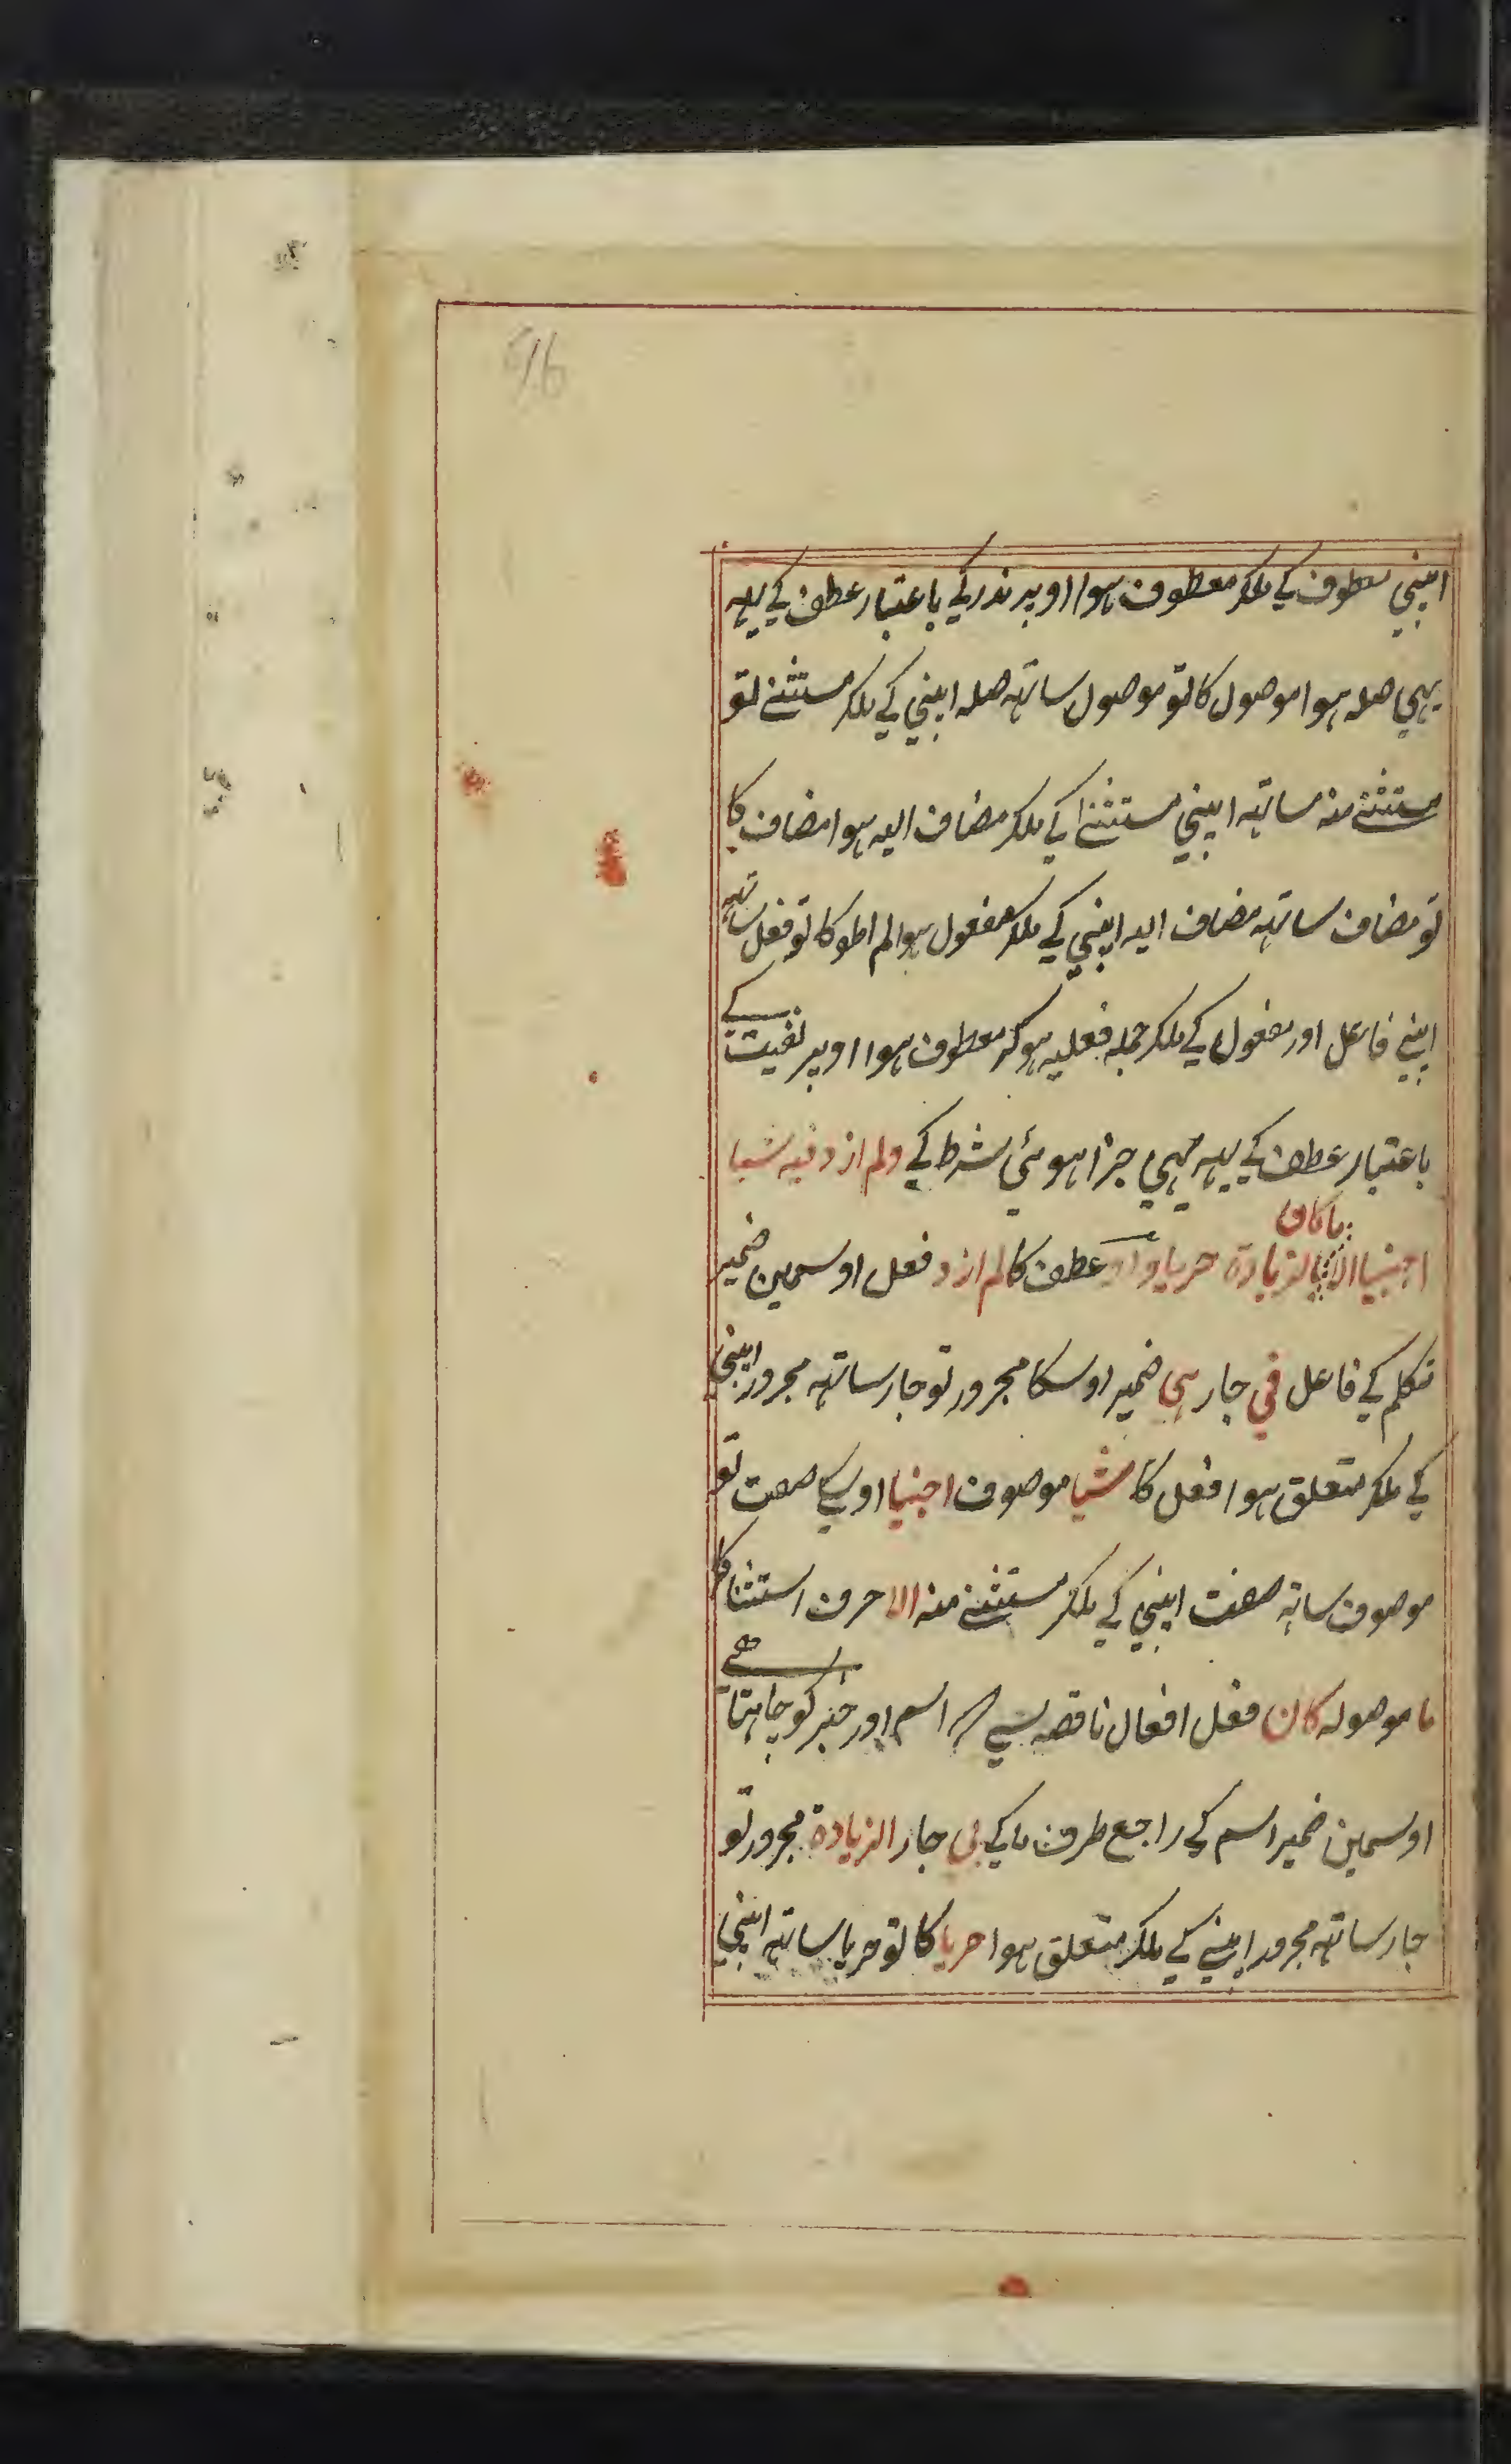 16
اپنی معطوف کے ملکر معطوف ہوا اوپر ندر کے باعتبار عطف کے یہہ
یہی صلہ ہوا موصول کا تو موصول ساتہہ صلہ اپنی کے ملکر مستثنے تو
مستثنے منہ ساتہہ اپنی مستثنے کے ملکر مضاف الیہ ہوا مضاف کا
تو مضاف ساتہہ مضاف الیہ اپنی کے ملکر مفعول ہوا لم اطو کا تو فعل ساتہہ
اپنے فاعل اور مفعول کے ملکر جملہ فعلیہ ہوکر معطوف ہوا اوپر نفیت کے
باعتبار عطف کے یہہ بہی جزا ہوئی شرط کے ولم ازد فیہ شیا
اجنبیا الا ما کان بالزیادة حریا واو عطف کا لم ازد فعل اوسمین ضمیر
متکلم کے فاعل في جار ہی ضمیر اوسکا مجرور تو جار ساتہہ مجرور اپنی
کے ملکر متعلق ہوا فعل کا شیا موصوف اجنبیا اوسکے صفت تو
موصوف ساتہ صفت اپنی کے ملکر مستثنے منہ الا حرف استثنا کا
ما موصولہ کان فعل افعال ناقصہ سے اسم اور خبر کو چاہتا ہے
اوسمین ضمیر اسم کے راجع طرف ما کے بی جار الزیادة مجرور تو
جار ساتہہ مجرور اپنے کے ملکر متعلق ہوا حریا کا تو حریا ساتہہ اپنی